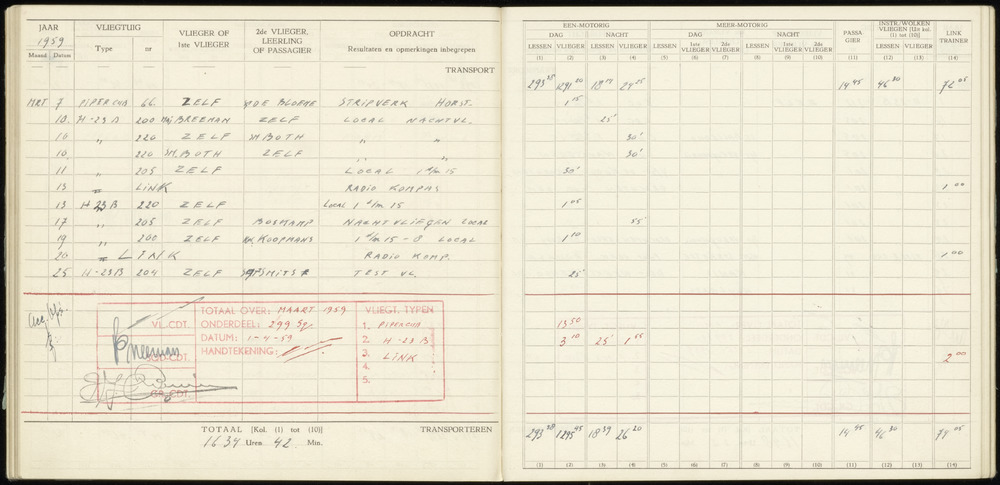 JAAR VLIEGTUIG VLIEGER OF 1ste VLIEGER 2de VLIEGER, LEERLING OF PASSAGIER OPDRACHT
1959
Maand Datum Type nr Resultaten en opmerkingen inbegrepen
TRANSPORT
MRT 7 PIPER CUB 66 ZELF DE BLOEME STRIPVERK HORST.
10. H-23 B 200 BREEMAN ZELF LOCAL NACHTVL.
10 " 220 ZELF BOTH " "
10. 220 BOTH ZELF " "
11 " 205 ZELF LOCAL 15
13 LINK RADIO KOMPAS
13 H-23 B 220 ZELF LOCAL 1 15
17 " 205 ZELF BOSKAMP NACHTVLIEGEN LOCAL
19 " 200 ZELF KOOPMANS 1 15-8 LOCAL
20 LINK RADIO KOMP.
25 H-23B 204 ZELF SMITS TEST VL.
TOTAAL OVER: MAART 1959
VL.CDT. ONDERDEEL: 299 Sq.
DATUM: 1-4-59
SQ-CDT. HANDTEKENING:
GR.CDT.
VLIEGT. TYPEN
1. PIPERCUB
2. H-23 B
3. LINK
4.
5.
TOTAAL [Kol. (1) tot (10)] TRANSPORTEREN
1634 Uren 42 Min.
EEN-MOTORIG MEER-MOTORIG PASSAGIER INSTR./WOLKEN VLIEGEN [Uit kol. (1) tot (10)] LINK TRAINER
DAG NACHT DAG NACHT
LESSEN VLIEGER LESSEN VLIEGER LESSEN 1ste VLIEGER 2de VLIEGER LESSEN 1ste VLIEGER 2de VLIEGER LESSEN VLIEGER
(1) (2) (3) (4) (5) (6) (7) (8) (9) (10) (11) (12) (13) (14)
1291 20 24 25 14 45 46 30 72 05
1 15
25'
30'
30'
30'
1 00
1 05
55
1 10
1 00
25'
13 50
3 10 25'
2 00
1295 45 18 59 26 20 14 45 46 30 74 05
(1) (2) (3) (4) (5) (6) (7) (8) (9) (10) (11) (12) (13) (14)